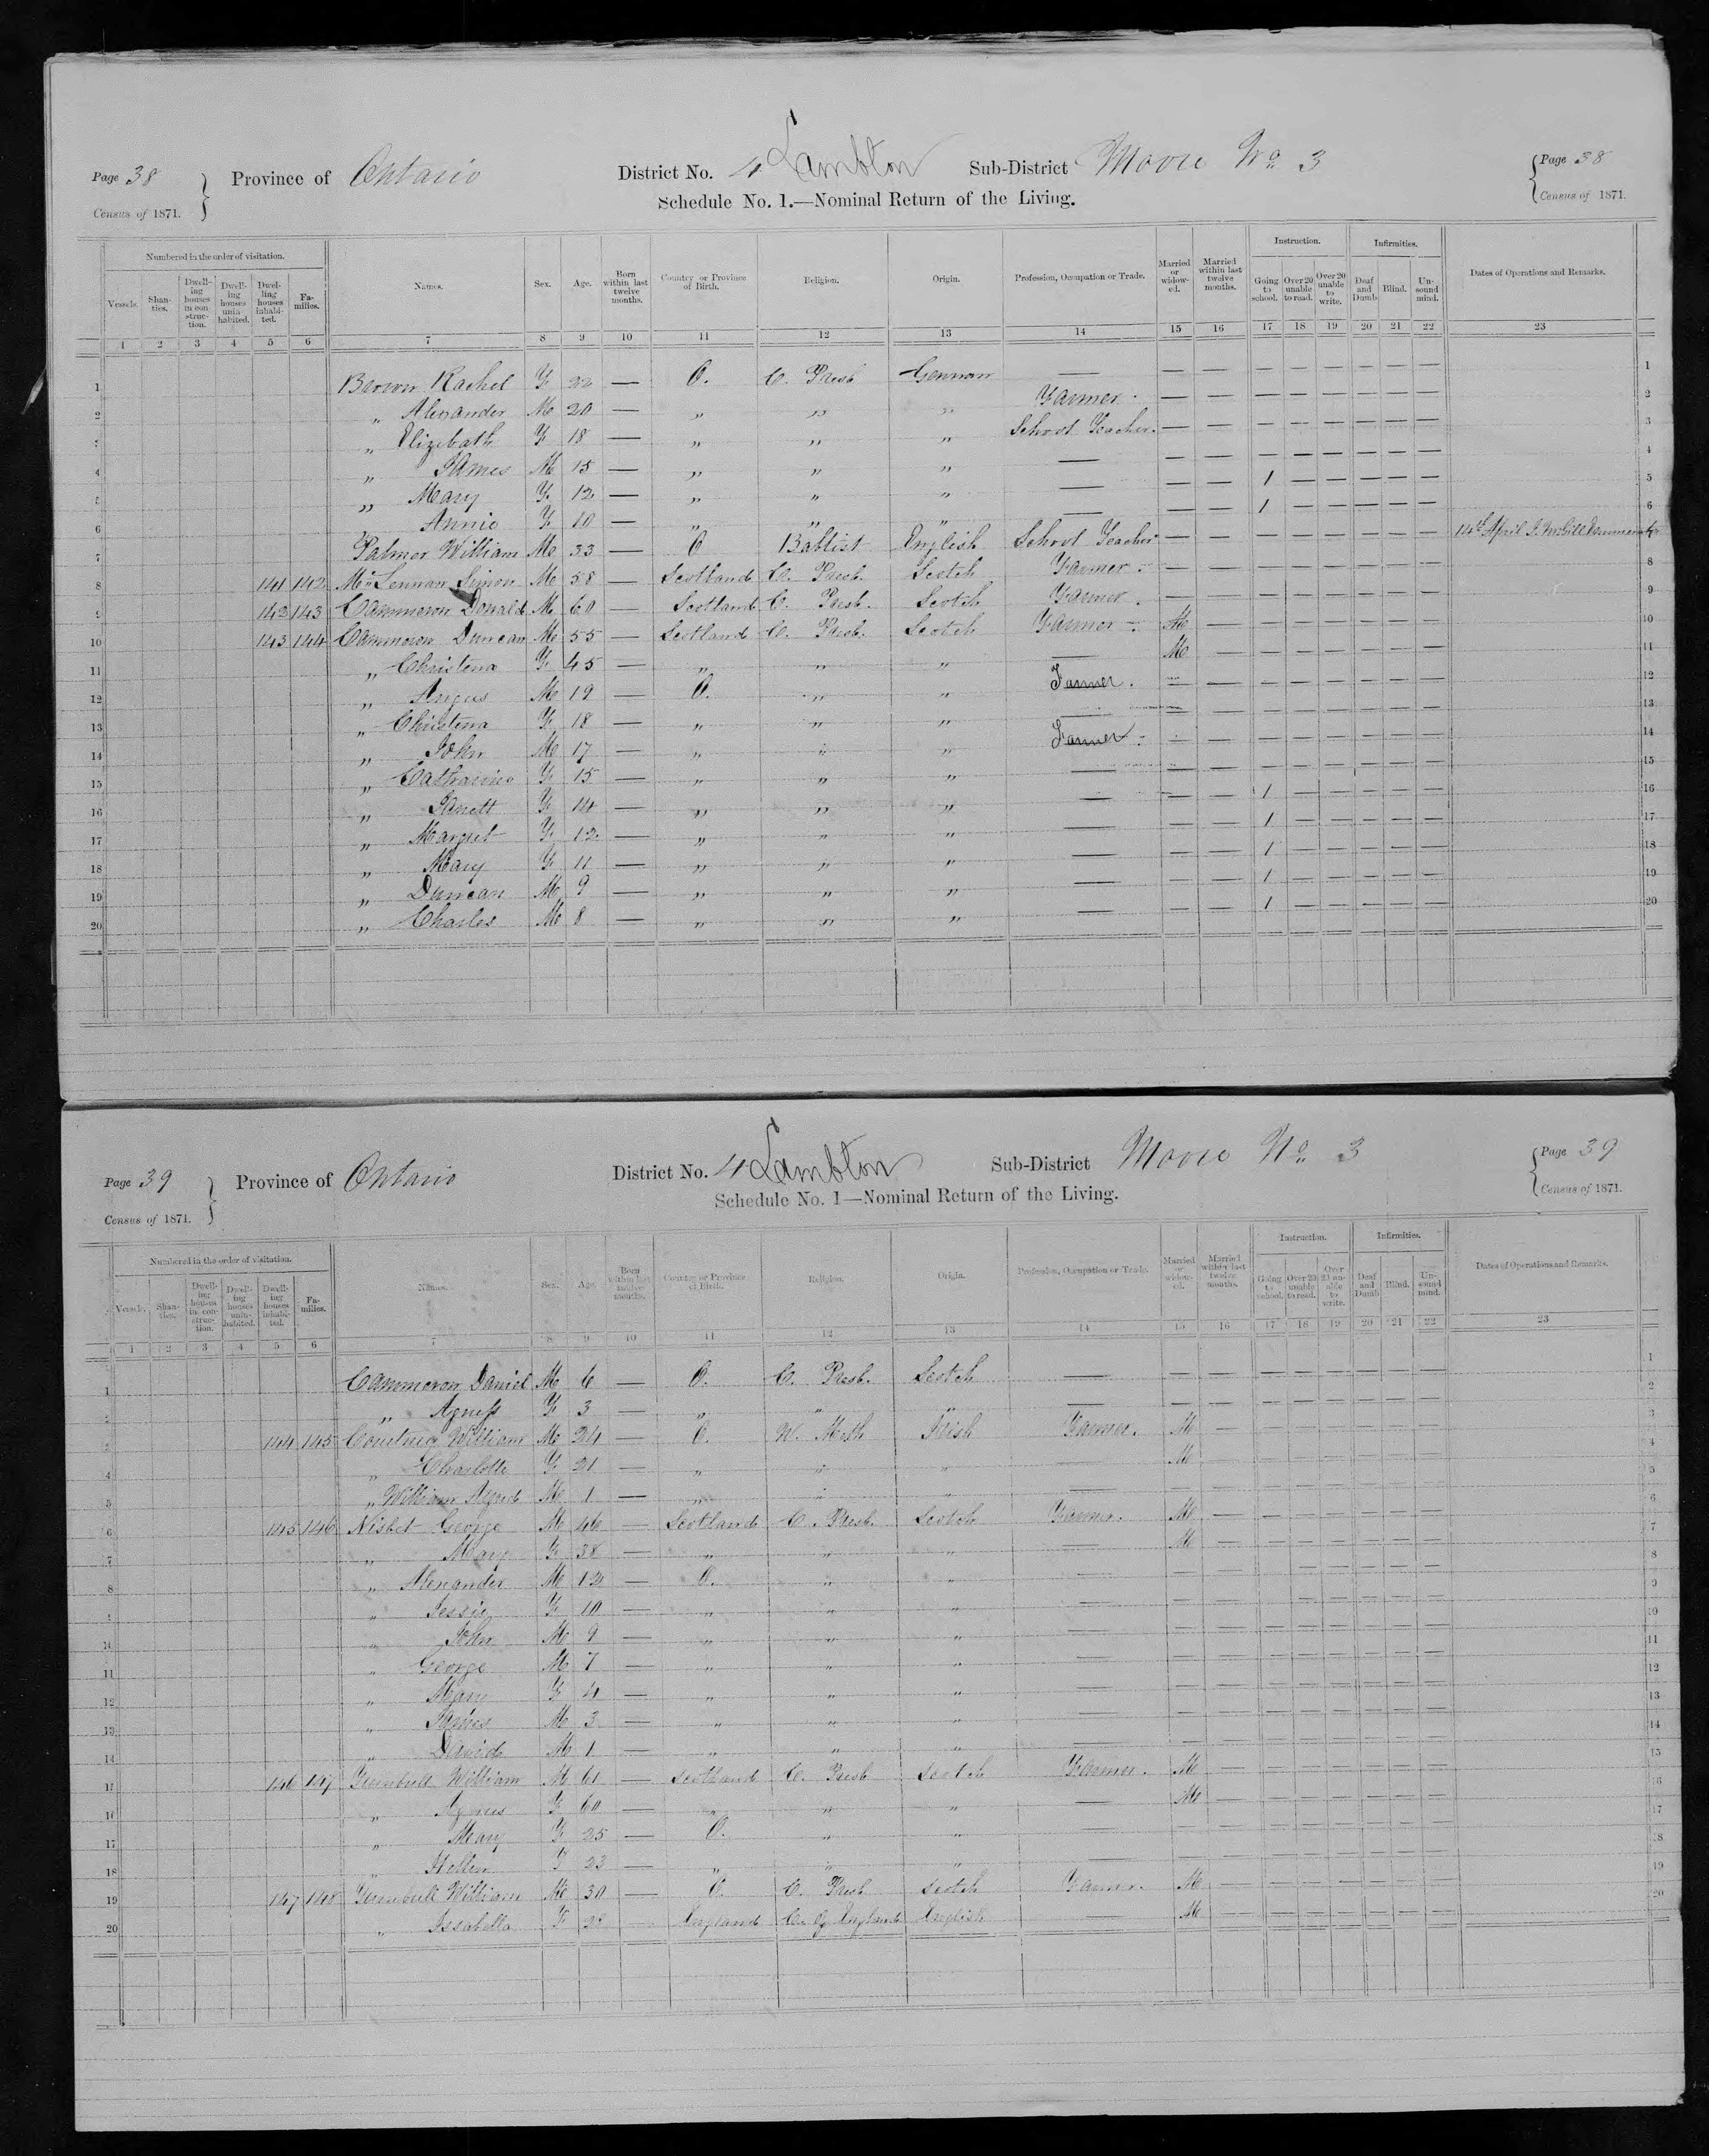 Page 38 Province of Ontario District No. 4 Lambton Sub-District Moore No 3 Page 38
Census of 1871. Schedule No. 1.—Nominal Return of the Living. Census of 1871.
Numbered in the order of visitation. Instruction. Infirmities.
Vessels. Shanties. Dwelling houses in construction. Dwelling houses uninhabited. Dwelling houses inhabited. Families. Names. Sex. Age. Born within last twelve months. Country or Province of Birth. Religion. Origin. Profession, Occupation or Trade. Married or widowed. Married within last twelve months. Going to school. Over 20 unable to read. Over 20 unable to write. Deaf and Dumb. Blind. Unsound mind. Dates of Operations and Remarks.
1 2 3 4 5 6 7 8 9 10 11 12 13 14 15 16 17 18 19 20 21 22 23
1 Rachel F 22 — O. C. Presb German — — — — — — — — — 1
2 „ Alexander M 20 — „ „ „ Farmer. — — — — — — — — 2
3 „ Elizebath F 18 — „ „ „ School Teacher. — — — — — — — — 3
4 „ James M 15 — „ „ „ — — — — — — — — — 4
5 „ Mary F 12 — „ „ „ — — — 1 — — — — — 5
6 „ Annie F 10 — „ „ „ — — — 1 — — — — — 6
7 Palmer William M 33 — O Babtist English School Teacher — — — — — — — — 14th April
8 141 142 McLennan Simon M 58 — Scotland C. Presb. Scotch Farmer — — — — — — — — 8
9 142 143 Cammeron Donald M 60 — Scotland C. Presb. Scotch Farmer. — — — — — — — — 9
10 143 144 Cammeron Duncan M 55 — Scotland C. Presb. Scotch Farmer M — — — — — — — 10
11 „ Christena F 45 — „ „ „ — M — — — — — — — 11
12 „ Angus M 19 — O. „ „ Farmer. — — — — — — — — 12
13 „ Christena F 18 — „ „ „ — — — — — — — — — 13
14 „ John M 17 — „ „ „ Farmer. — — — — — — — — 14
15 „ Catharine F 15 — „ „ „ — — — — — — — — — 15
16 „ Janett F 14 — „ „ „ — — — 1 — — — — — 16
17 „ Margret F 12 — „ „ „ — — — 1 — — — — — 17
18 „ Mary F 11 — „ „ „ — — — 1 — — — — — 18
19 „ Duncan M 9 — „ „ „ — — — 1 — — — — — 19
20 „ Charles M 8 — „ „ „ — — — 1 — — — — — 20
Page 39 Province of Ontario District No. 4 Lambton Sub-District Moore No 3 Page 39
Census of 1871. Schedule No. 1—Nominal Return of the Living. Census of 1871.
Numbered in the order of visitation. Instruction. Infirmities.
Vessels. Shanties. Dwelling houses in construction. Dwelling houses uninhabited. Dwelling houses inhabited. Families. Names. Sex. Age. Born within last twelve months. Country or Province of Birth. Religion. Origin. Profession, Occupation or Trade. Married or widowed. Married within last twelve months. Going to school. Over 20 unable to read. Over 20 unable to write. Deaf and Dumb Blind. Unsound mind. Dates of Operations and Remarks.
1 2 3 4 5 6 7 8 9 10 11 12 13 14 15 16 17 18 19 20 21 22 23
1 Cammeron Daniel M 6 — O. C. Presb. Scotch — — — — — — — — — 1
2 „ Agness F 3 — „ „ „ — — — — — — — — — 2
3 144 145 William M 24 — O. W. Meth Irish Farmer. M — — — — — — — 3
4 „ Charlotte F 21 — „ „ „ — M — — — — — — — 4
5 „ William M 1 — „ „ „ — — — — — — — — — 5
6 145 146 Nisbet George M 46 — Scotland C. Presb. Scotch Farmer. M — — — — — — — 6
7 „ Mary F 38 — „ „ „ — M — — — — — — — 7
8 „ Alexander M 12 — O. „ „ — — — — — — — — — 8
9 „ Jessie F 10 — „ „ „ — — — — — — — — — 9
10 „ John M 9 — „ „ „ — — — — — — — — — 10
11 „ George M 7 — „ „ „ — — — — — — — — — 11
12 „ Mary F 4 — „ „ „ — — — — — — — — — 12
13 „ James M 3 — „ „ „ — — — — — — — — — 13
14 „ David M 1 — „ „ „ — — — — — — — — — 14
15 146 147 Turnbull William M 61 — Scotland C. Presb Scotch Farmer. M — — — — — — — 15
16 „ Agnes F 60 — „ „ „ — M — — — — — — — 16
17 „ Mary F 25 — O. „ „ — — — — — — — — — 17
18 „ Hellen F 23 — „ „ „ — — — — — — — — — 18
19 147 148 Turnbull William M 30 — O. C. Presb Scotch Farmer. M — — — — — — — 19
20 „ Issabella F — England C. of England English — M — — — — — — — 20